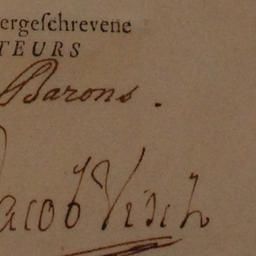 ergeſchrevene
TEURS
Barons.
Jacob Visch